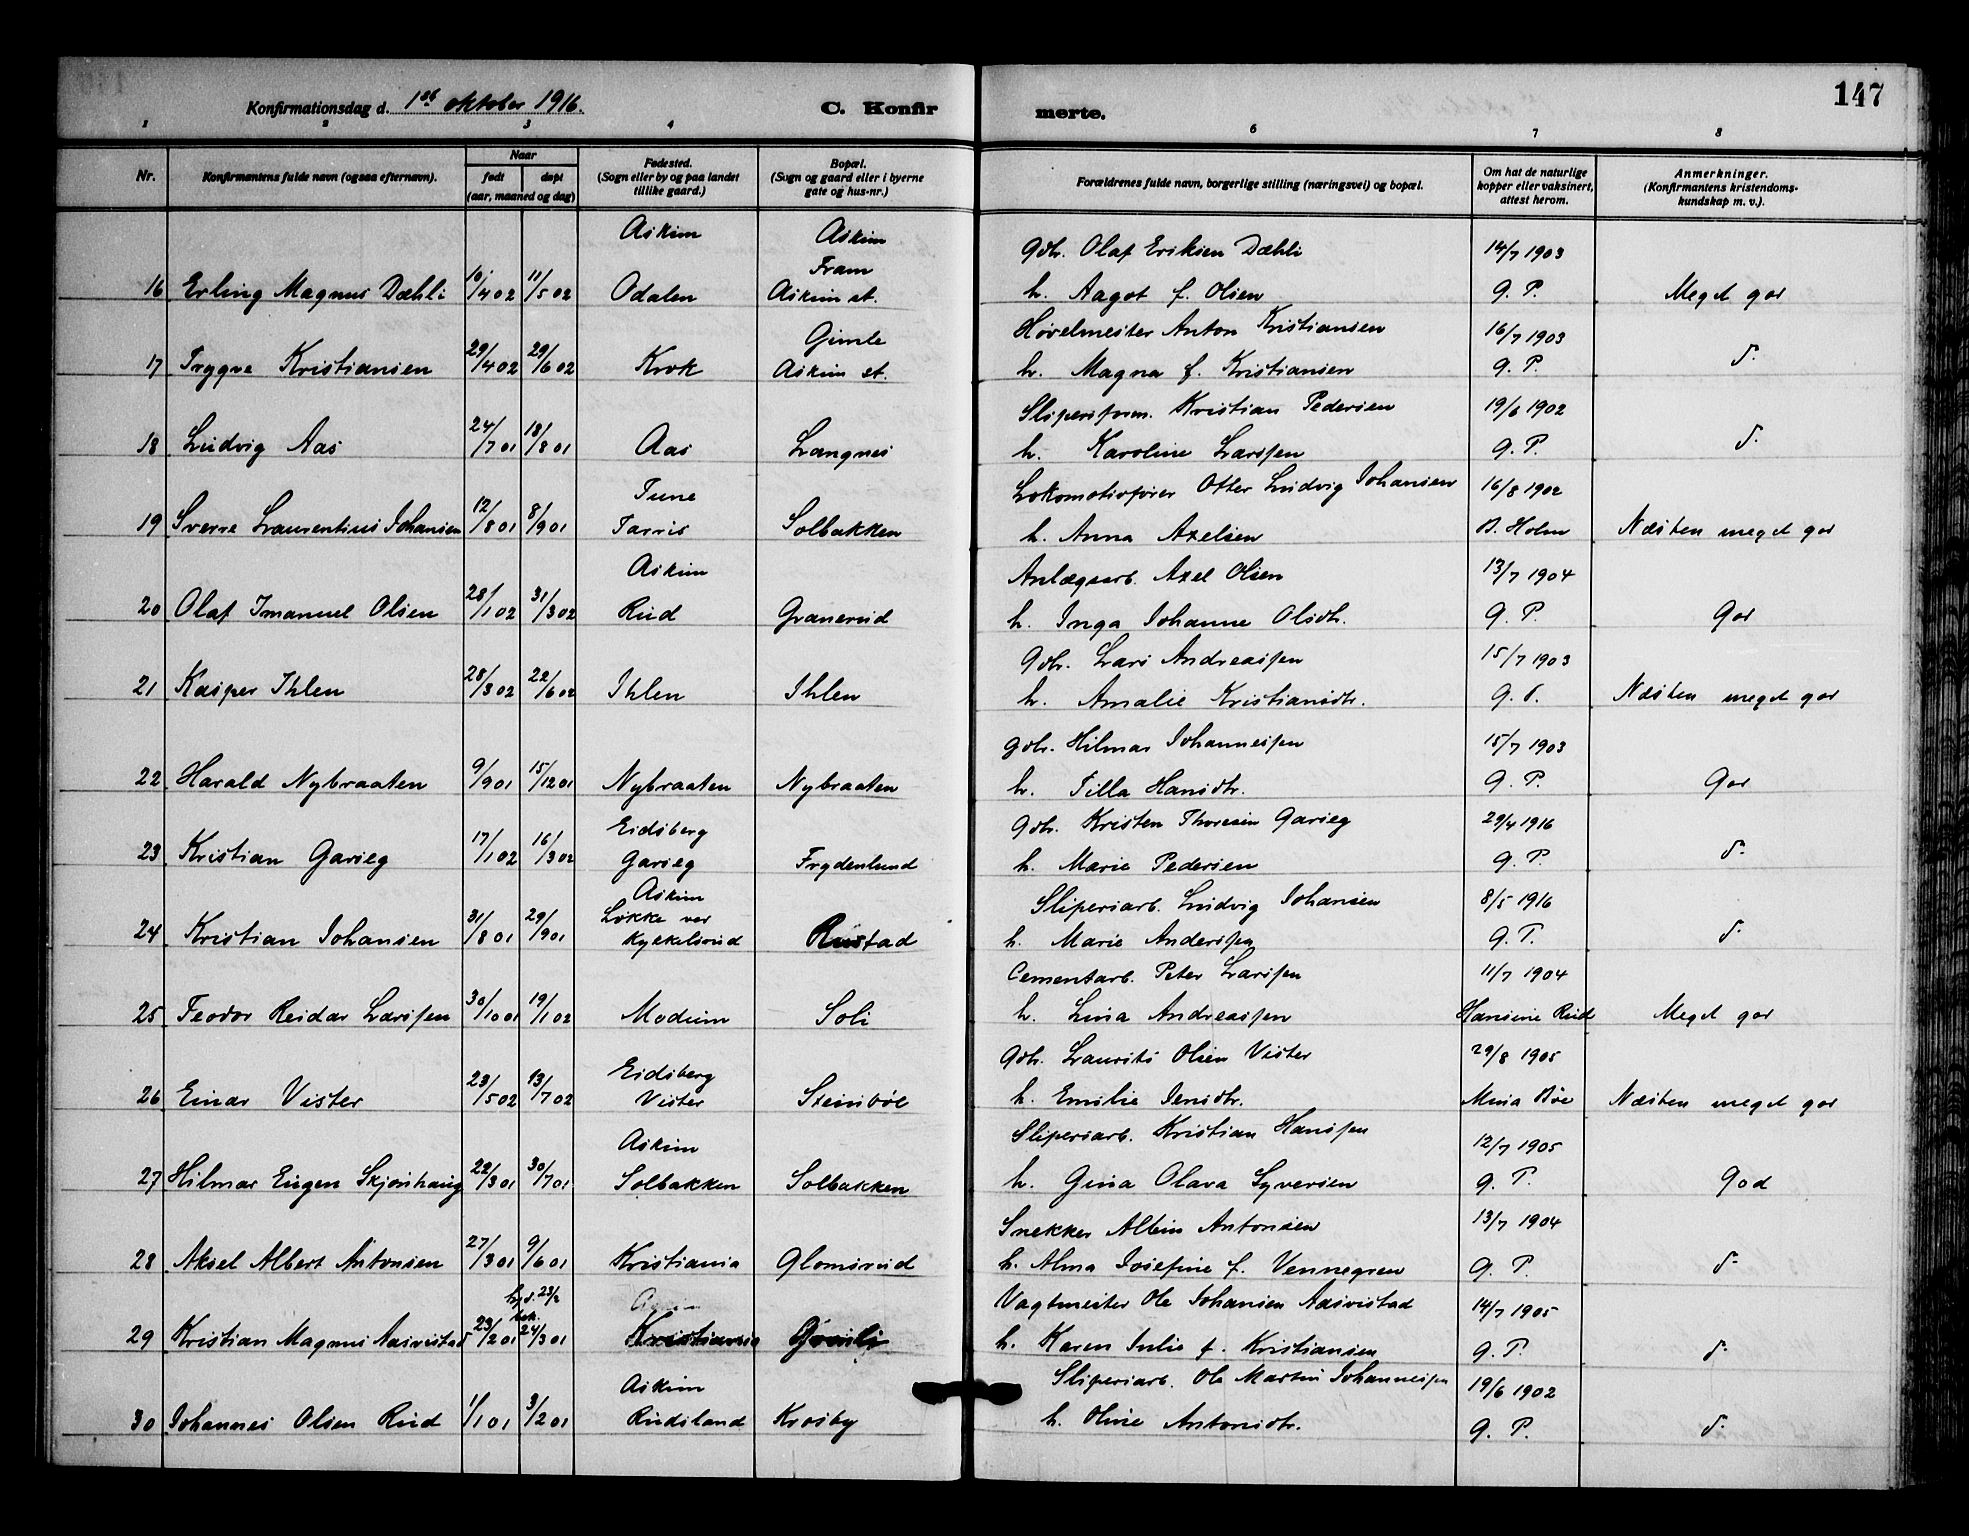 147
Konfirmationsdag d. 1ste oktober 1916.
C. Konfirmerte.
1 2 3 4 6 7 8
Nr.
Konfirmantens fulde navn (ogsaa efternavn).
Naar
født døpt
(aar, maaned og dag)
Fødested.
(Sogn eller by og paa landet
tillike gaard.)
Bopæl.
(Sogn og gaard eller i byerne
gate og hus-nr.)
Forældrenes fulde navn, borgerlige stilling (næringsvei) og bopæl.
Om hat de naturlige
kopper eller vaksinert,
attest herom.
Anmerkninger.
(Konfirmantens kristendoms-
kundskap m. v.).
Askim Askim Gbr. Olaf Eriksen Dæhli 14/7 1903
Fram
16 Erling Magnus Dæhli 10/4 02 11/5 02 Odalen Askim st. h. Aagot f. Olsen G. P. Meget god
Gimle Høvelmester Anton Kristiansen 16/7 1903
17 Trygve Kristiansen 29/4 02 29/6 02 Krok Askim st. h. Magna f. Kristiansen G. P. d.
Sliperiform. Kristian Pedersen 19/6 1902
18 Ludvig Aas 24/7 01 18/8 01 Aas Langnes h. Karoline Larssen G. P. d.
Tune Lokomotivfører Otter Ludvig Johansen 16/8 1902
19 Sverre Laurentius Johansen 12/8 01 8/9 01 Tarris Solbakken h. Anna Axelsen B. Holm Næsten meget god
Askim Anlægsarb. Axel Olsen 13/7 1904
20 Olaf Imanuel Olsen 28/1 02 31/3 02 Rud Granerud h. Inga Johanne Olsdtr. G. P. God
Gbr. Lars Andreassen 15/7 1903
21 Kasper Ihlen 28/3 02 22/6 02 Ihlen Ihlen h. Amalie Kristiansdtr. G. P. Næsten meget god
Gbr. Hilmar Johannessen 15/7 1903
22 Harald Nybraaten 9/9 01 15/12 01 Nybraaten Nybraaten h. Tilla Hansdtr. G. P. God
Eidsberg Gbr. Kristen Thoresen Garseg 29/4 1916
23 Kristian Garseg 17/1 02 16/3 02 Garseg Frydenlund h. Marie Pedersen G. P. d.
Askim Sliperiarb. Ludvig Johansen 8/5 1916
Løkke ved
24 Kristian Johansen 31/8 01 29/9 01 Kykkelsrud Rustad h. Marie Anderssen G. P. d.
Cementarb. Peter Larssen 11/7 1904
25 Teodor Reidar Larssen 30/10 01 19/1 02 Modum Soli h. Lina Andreassen Hansine Rud Meget god
Eidsberg Gbr. Laurits Olsen Vister 29/8 1905
26 Einar Vister 23/5 02 13/7 02 Vister Steinbøl h. Emilie Jensdtr. Mina Bøe Næsten meget god
Askim Sliperiarb. Kristian Hanssen 12/7 1905
27 Hilmar Eugen Skjønhaug 22/3 01 30/7 01 Solbakken Solbakken h. Gina Olava Syversen G. P. God
Snekker Albin Antonsen 13/7 1904
28 Aksel Albert Antonsen 27/3 01 9/6 01 Kristiania Glomsrud h. Alma Josefine f. Vennegren G. P. d.
hjd. 23/2 Vagtmester Ole Johansen Aasvistad 14/7 1905
bek.
29 Kristian Magnus Aasvistad 23/2 01 24/3 01 Kristiania h. Karen Julie f. Kristiansen G. P. d.
Askim Sliperiarb. Ole Martin Johannessen 19/6 1902
30 Johannes Olsen Rud 1/1 01 3/2 01 Rudsland Krosby h. Oline Antonsdtr. G. P. d.